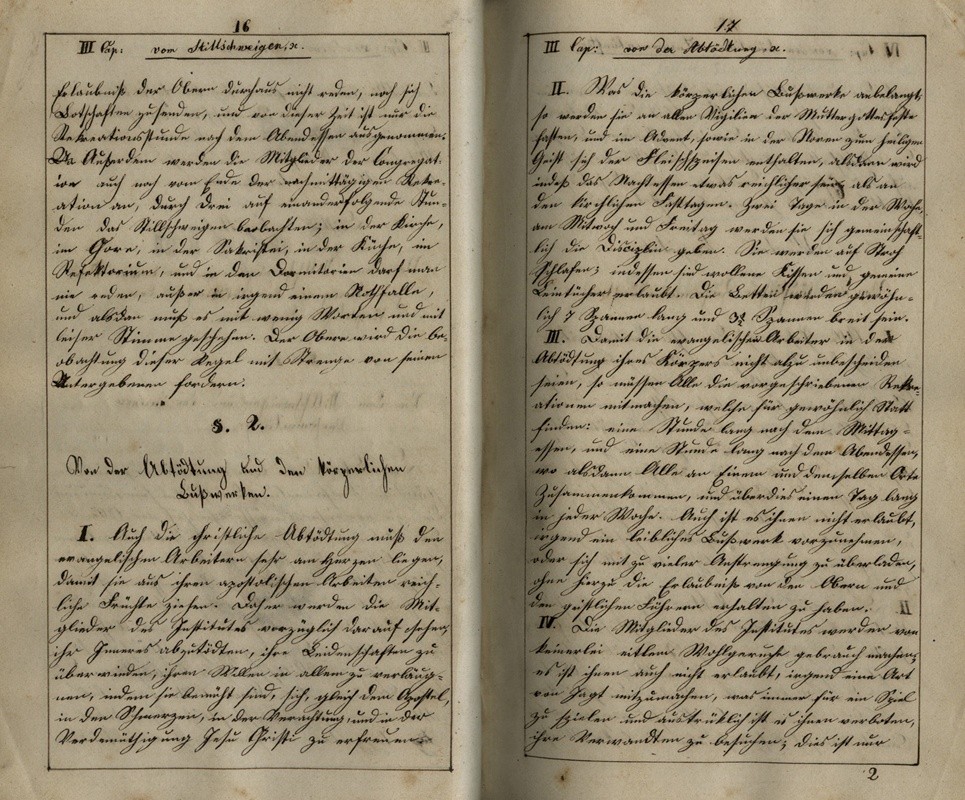 16
III Cap: vom Stillschweigen, x.
Erlaubniß der Obern durchaus nicht reden, noch sich
Botschaften zusenden, und von dieser Zeit ist nur die
Rekreationsstunde nach dem Abendessen ausgenommen.
Außerdem werden die Mitglieder der Congregat-
ion auch noch vom Ende der nachmittägigen Rekre-
ation an, durch drei auf einanderfolgende Stun-
den das Stillschweigen beobachten; in der Kirche,
im Chore, in der Sakristei, in der Küche, im
Refektorium, und in den Dormitorien darf man
nie reden, außer in irgend einem Nothfalle,
und alsdan muß es mit wenig Worten und mit
leiser Stimme geschehen. Der Obere wird die Be-
obachtung dieser Regel mit Strenge von seinen
Untergebenen fordern.
§. 2.
Von der Abtödtung und den körperlichen
Bußwerken.
I. Auch die christliche Abtödtung muß den
evangelischen Arbeitern sehr am Herzen liegen,
damit sie aus ihren apostolischen Arbeiten reich-
liche Früchte ziehen. Daher werden die Mit-
glieder des Institutes vorzüglich darauf sehen,
ihr Inneres abzutödten, ihre Leidenschaften zu
überwinden, ihren Willen in allem zu verläug-
nen, indem sie bemüht sind, sich, gleich dem Apostel,
in den Schmerzen, in der Verachtung, und in der
Verdemüthigung Jesu Christi zu erfreuen.
17
III Cap: von der Abtödtung, x.
II. Was die körperlichen Bußwerke anbelangt,
so werden sie an allen Vigilien der Muttergottesfeste
fasten, und im Advent, sowie in der Noven zum heiligen
Geist sich der Fleischspeisen enthalten, alsdann wird
indeß das Nachtessen etwas reichlicher sein, als an
den kirchlichen Fasttagen. Zwei Tage in der Woche,
am Mitwoch und Freitag werden sie sich gemeinschaft-
lich die Disciplin geben. Sie werden auf Stroh
schlafen; indessen sind wollene Kissen und gemeine
Leintücher erlaubt. Die Betten werden gewöhn-
lich 7 Spannen lang und Spannen breit sein.
III. Damit die evangelischen Arbeiter in der
Abtödtung ihres Körpers nicht alzu unbescheiden
seien, so müssen Alle die vorgeschriebenen Rekre-
ationen mitmachen, welche für gewöhnlich Statt
finden: eine Stunde lang nach dem Mittag-
essen, und eine Stunde lang nach dem Abendessen,
wo alsdann Alle an Einem und demselben Orte
Zusammenkommen, und überdies einen Tag lang
in jeder Woche. Auch ist es ihnen nicht erlaubt,
irgend ein leibliches Bußwerk vorzunehmen,
oder sich mit zu vieler Anstrengung zu überladen,
ohne hierzu die Erlaubniß von den Obern und
den geistlichen Führern erhalten zu haben.
IV. Die Mitglieder des Institutes werden von
keinerlei eitlem Wohlgeruche gebrauch machen;
es ist ihnen auch nicht erlaubt, irgend eine Art
von Jagt mitzumachen, was immer für ein Spiel
zu spielen und ausdrüklich ist es ihnen verboten,
ihre Verwandten zu besuchen; dies ist nur
2